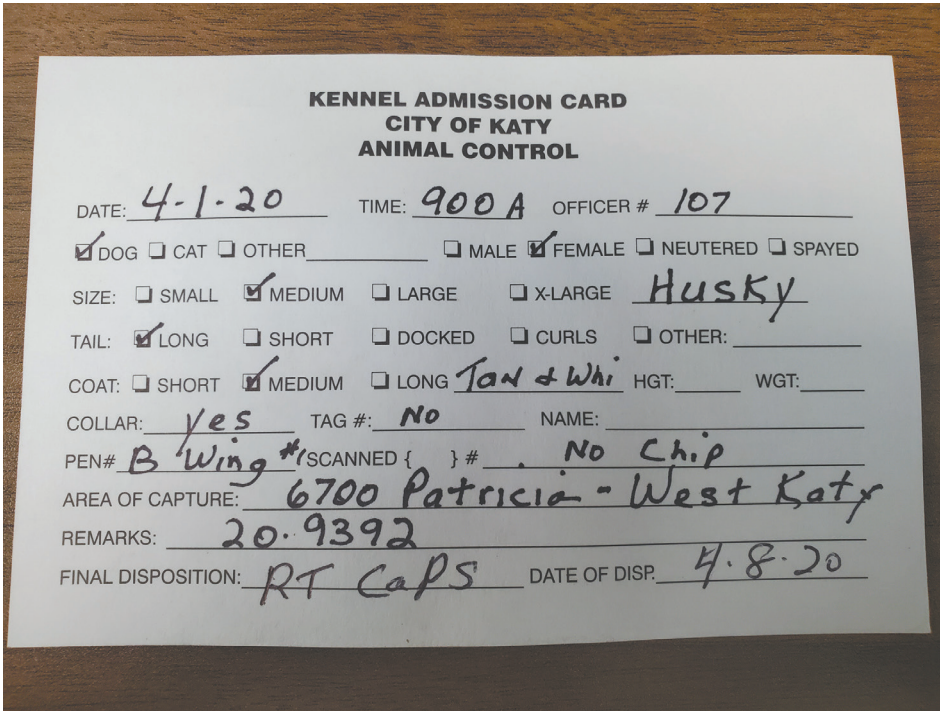 KENNEL ADMISSION CARD
CITY OF KATY
ANIMAL CONTROL
DATE: 4-1-20 TIME: 900 A OFFICER # 107
☑ DOG ☐ CAT ☐ OTHER ☐ MALE ☑ FEMALE ☐ NEUTERED ☐ SPAYED
SIZE: ☐ SMALL ☑ MEDIUM ☐ LARGE ☐ X-LARGE Husky
TAIL: ☑ LONG ☐ SHORT ☐ DOCKED ☐ CURLS ☐ OTHER:
COAT: ☐ SHORT ☑ MEDIUM ☐ LONG Tan & Whi HGT: WGT:
COLLAR: yes TAG #: No NAME:
PEN# B Wing #1 SCANNED { } # No Chip
AREA OF CAPTURE: 6700 Patricia - West Katy
REMARKS: 20-9392
FINAL DISPOSITION: RT CaPS DATE OF DISP. 4-8-20